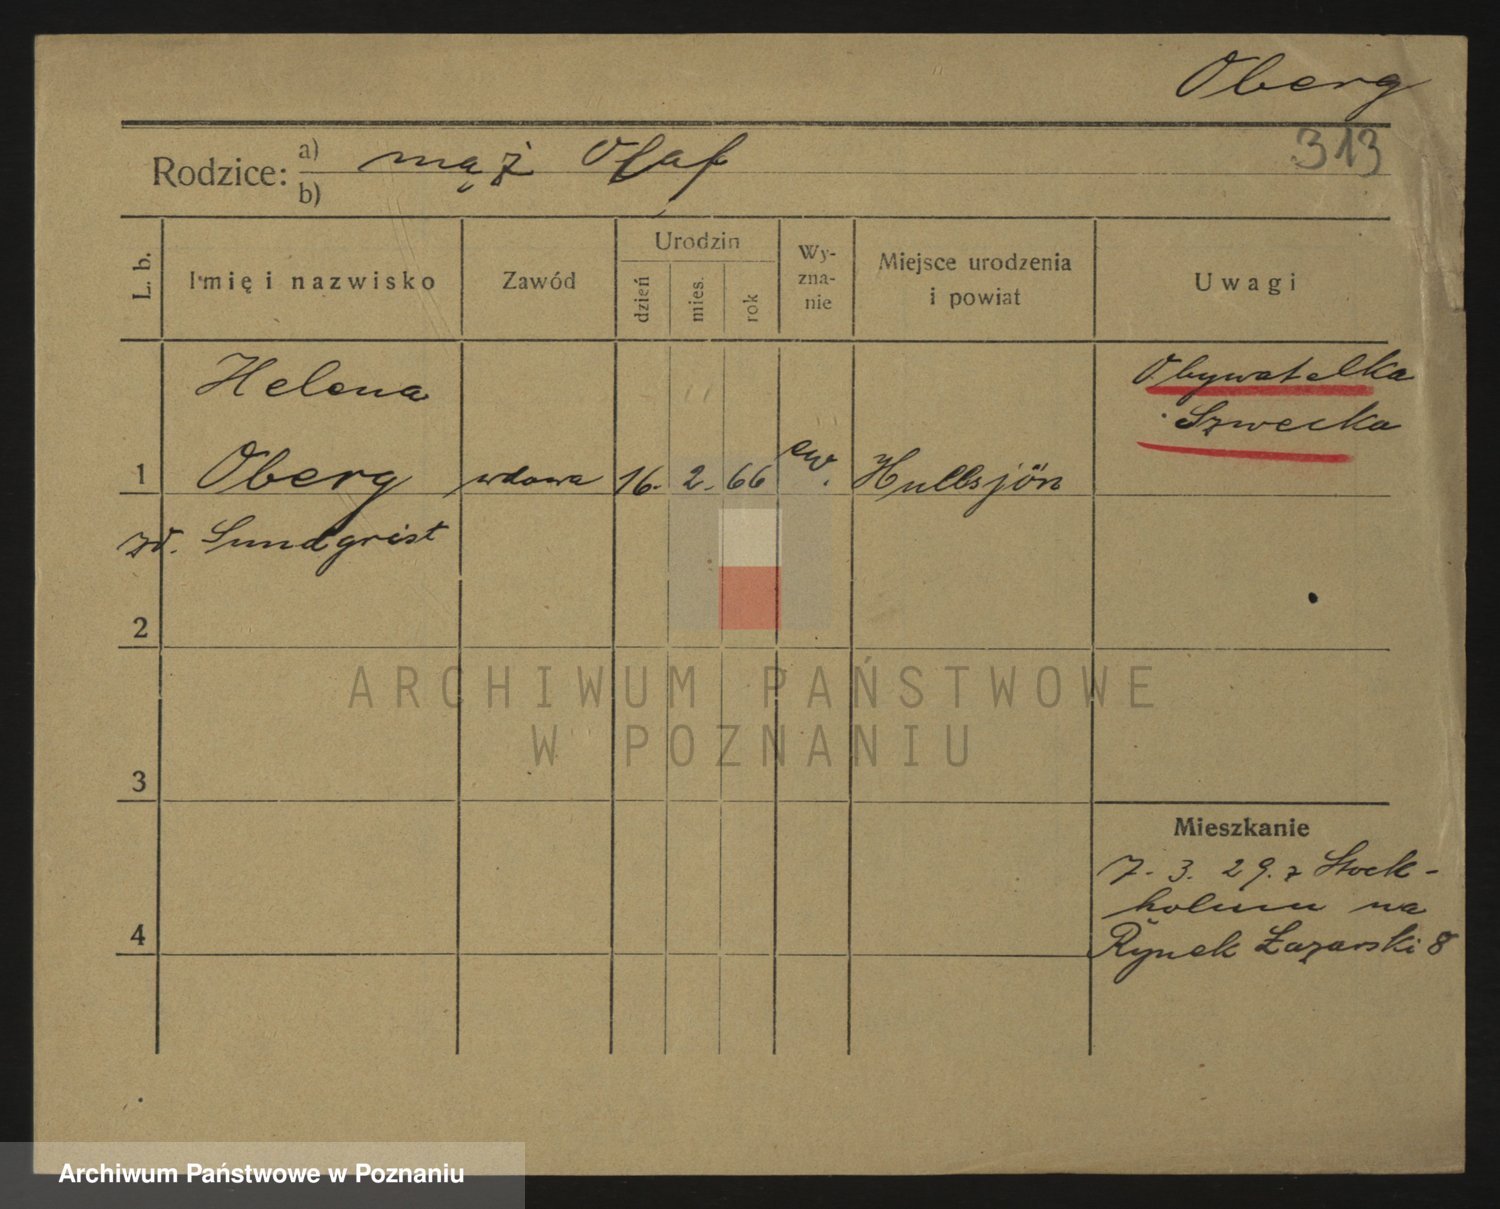 Oberg
313
Rodzice: a) mąż Olaf
b)
L. b.
Imię i nazwisko
Zawód
Urodzin
dzień
mies.
rok
Wy-
zna-
nie
Miejsce urodzenia
i powiat
Uwagi
Helena
Obywatelka
Szwecka
1 Oberg wdowa 16. 2. 66 ew. Hullsjön
zd. Sundqrist
2
3
Mieszkanie
7. 3. 29. z Stock-
holmu na
4 Rynek Łazarski 8
ARCHIWUM PAŃSTWOWE
W POZNANIU
Archiwum Państwowe w Poznaniu